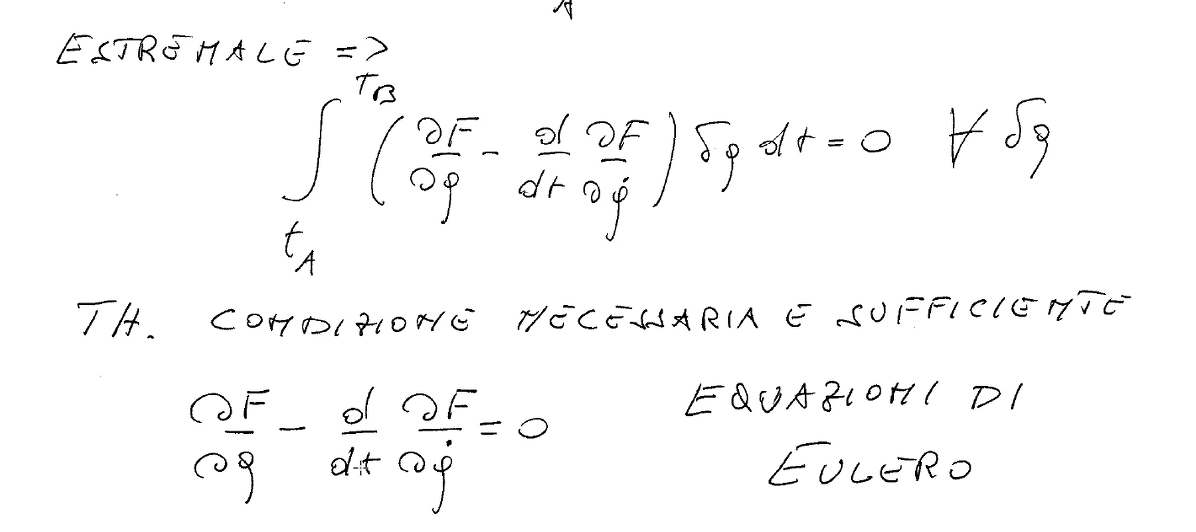 A
ESTREMALE =>
∫_{t_A}^{T_B} (∂F/∂q - d/dt ∂F/∂q̇) δq dt = 0 ∀ δq
TH. CONDIZIONE NECESSARIA E SUFFICIENTE
∂F/∂q - d/dt ∂F/∂q̇ = 0 EQUAZIONI DI
EULERO